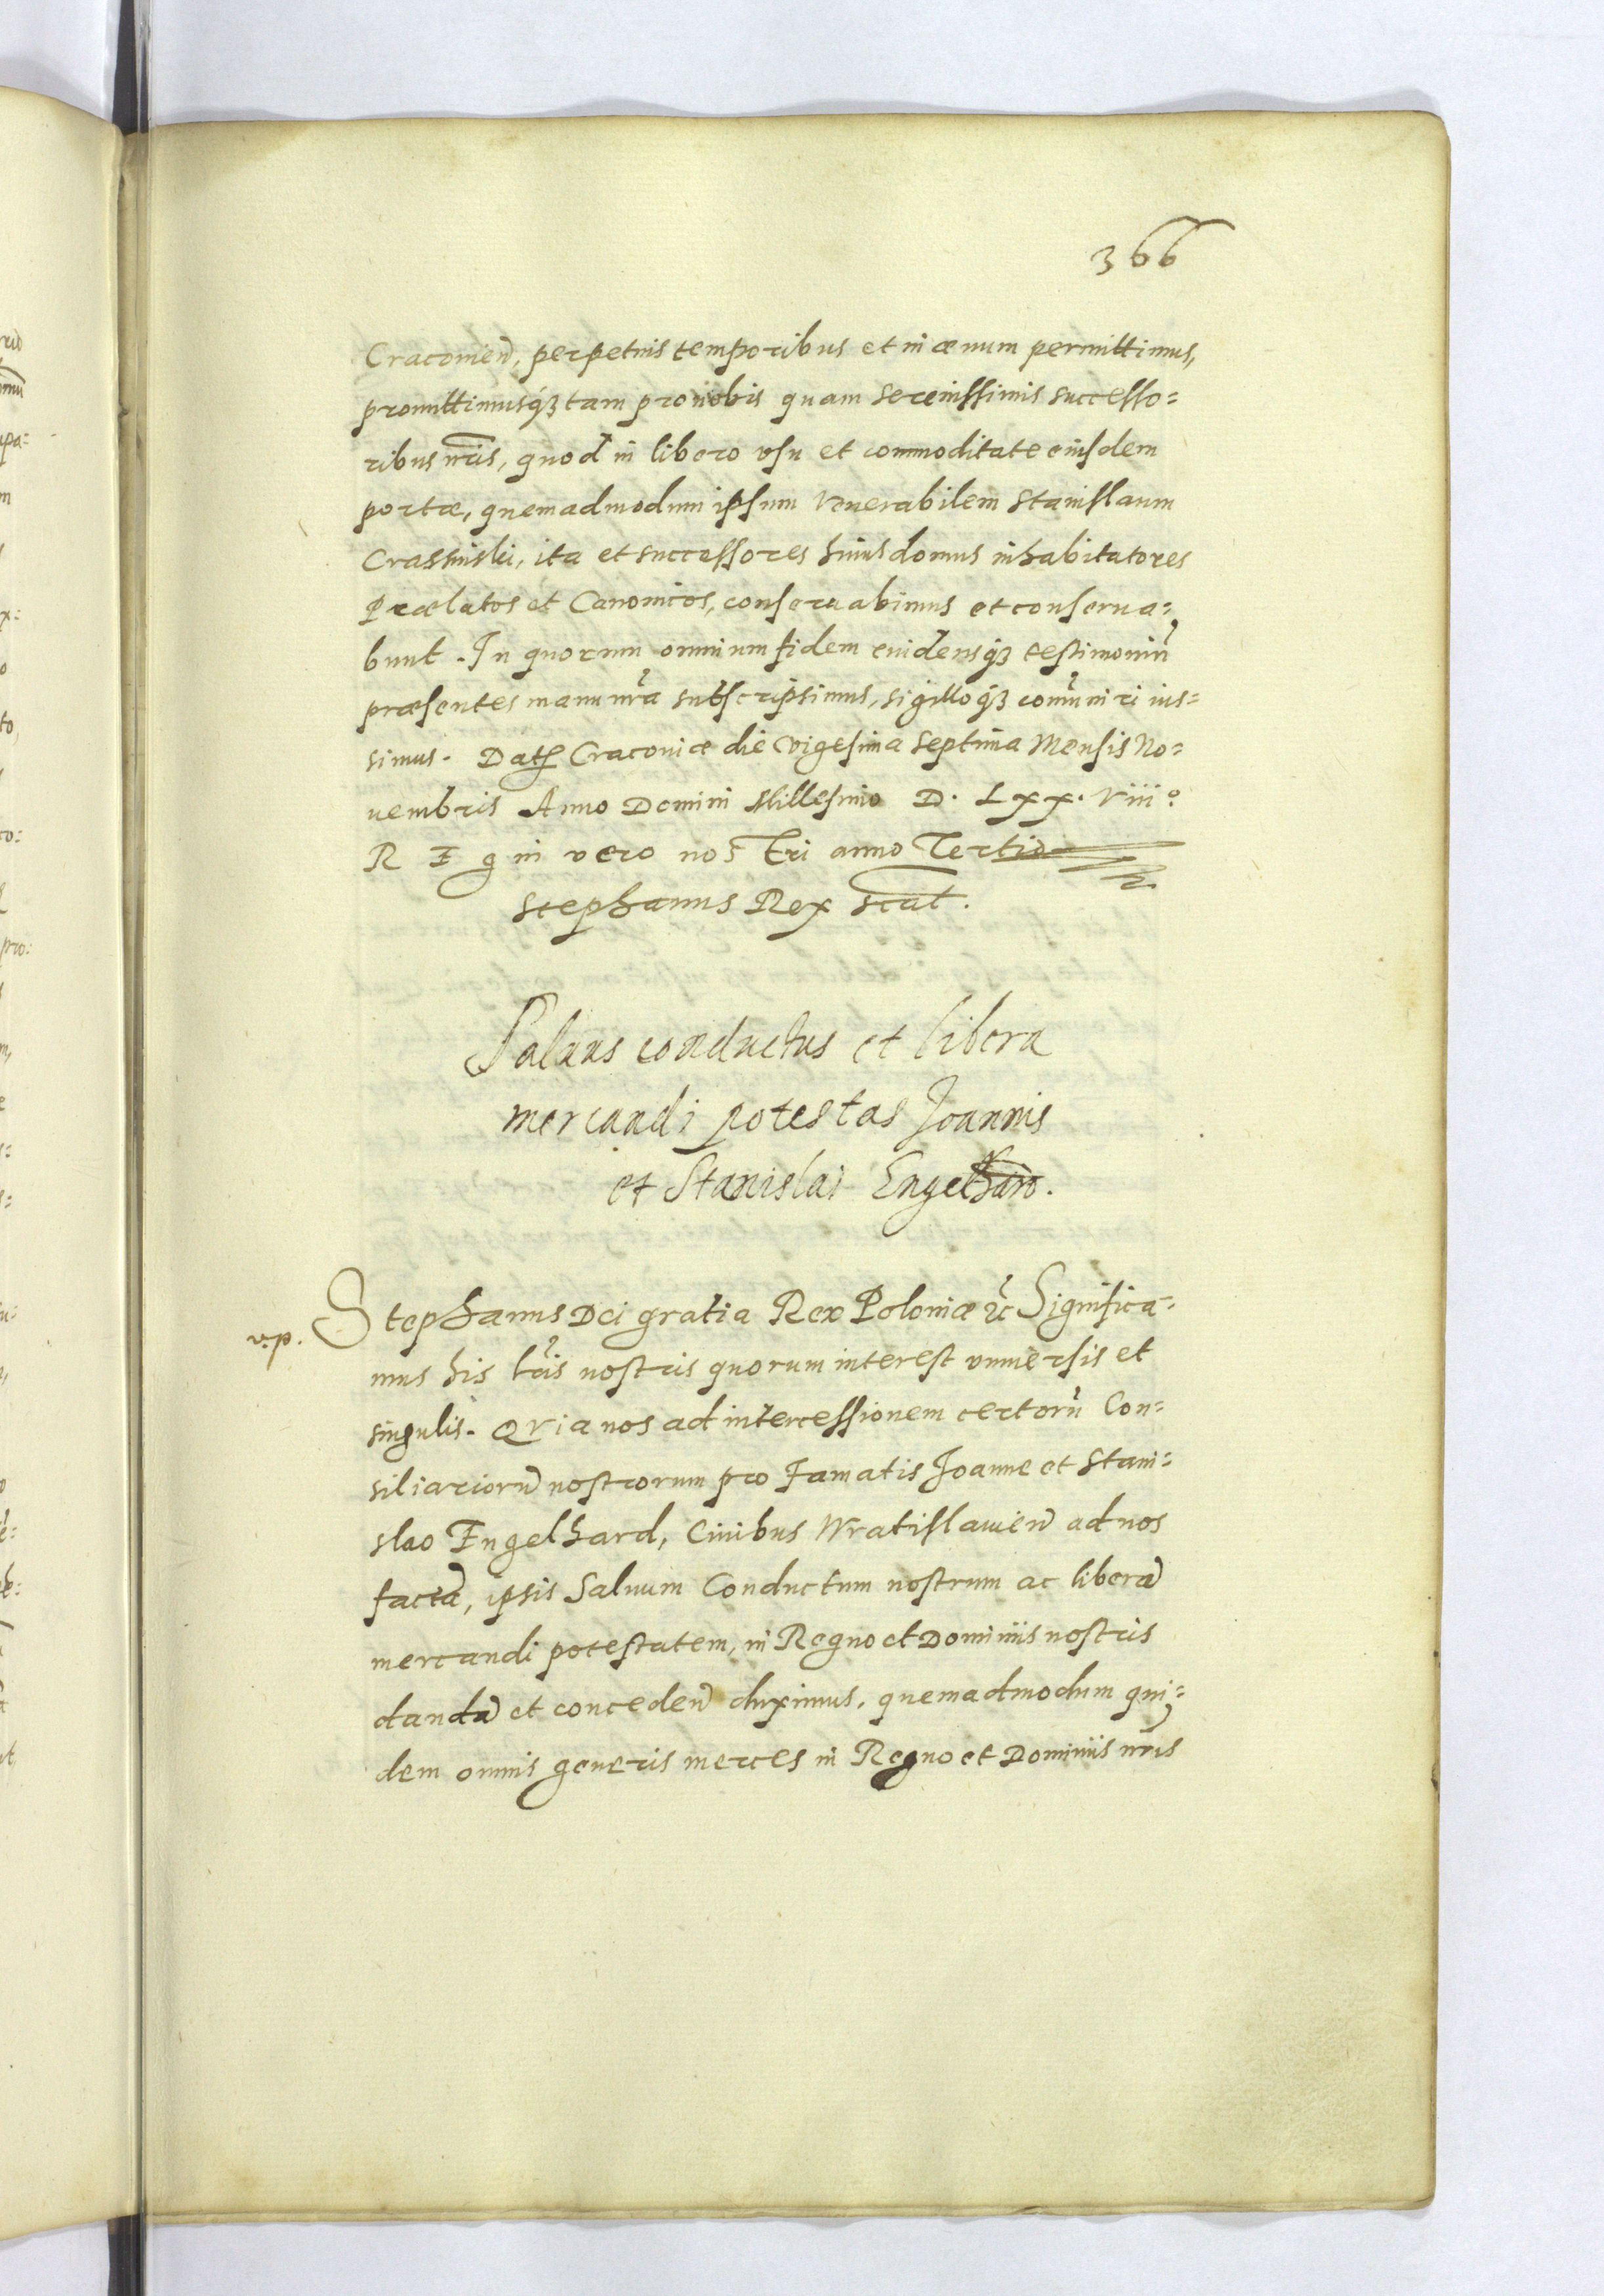 366
Cracouien̄, perpetuis temporibus et in æuum permittimus,
promittimusq̃ꝫ tam pro nobis quam serenissimis successo=
ribus nr̃is, quod in libero vsu et commoditate eiusdem
portæ, quemadmodum ipsum Venerabilem Stanislaum
Crassinski, ita et successores huius domus inhabitatores
Prælatos et Canonicos, conseruabimus et conserua=
bunt. In quorum omnium fidem euidensq̃ꝫ testimoniũ
præsentes manu nr̃a subscripsimus, sigilloq̃ꝫ com̃uniri ius=
simus. Datꝭ Cracouiæ die vigesima septima Mensis No=
uembris Anno Domini Millesimo D. Lxx. viiiº
REgni vero nostri anno Tertio
Stephanus Rex sc̃at.
Saluus conductus et libera
mercandi potestas Joannis
et Stanislai Engelhard.
v.p.
Stephanus Dei gratia Rex Poloniæ ꝛc̃ Significa=
mus his lr̃is nostris quorum interest vniuersis et
singulis. QVia nos ad intercessionem certorũ Con=
siliariorũ nostrorum pro Famatis Joanne et Stani=
slao Engelhard, Ciuibus Wratislauien̄ ad nos
factã, ipsis Saluum Conductum nostrum ac liberã
mercandi potestatem, in Regno et Dominiis nostris
dandã et conceden̄ duximus, quemadmodum qui=
dem omnis generis merces in Regno et Dominiis nr̃is